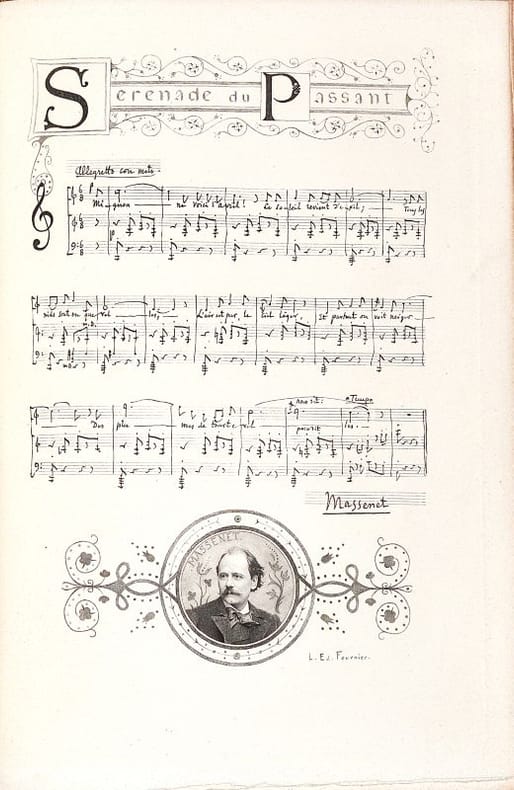 Serenade du Passant
Allegretto con moto.
Mignon voici l'avril! Le soleil revient d'exil; Tous les
nids sont en querelles; L'air est pur, le ciel léger, Et partout on voit neiger
Des plumes de tourterelles
a Tempo
Massenet
MASSENET
L. Ed. Fournier.